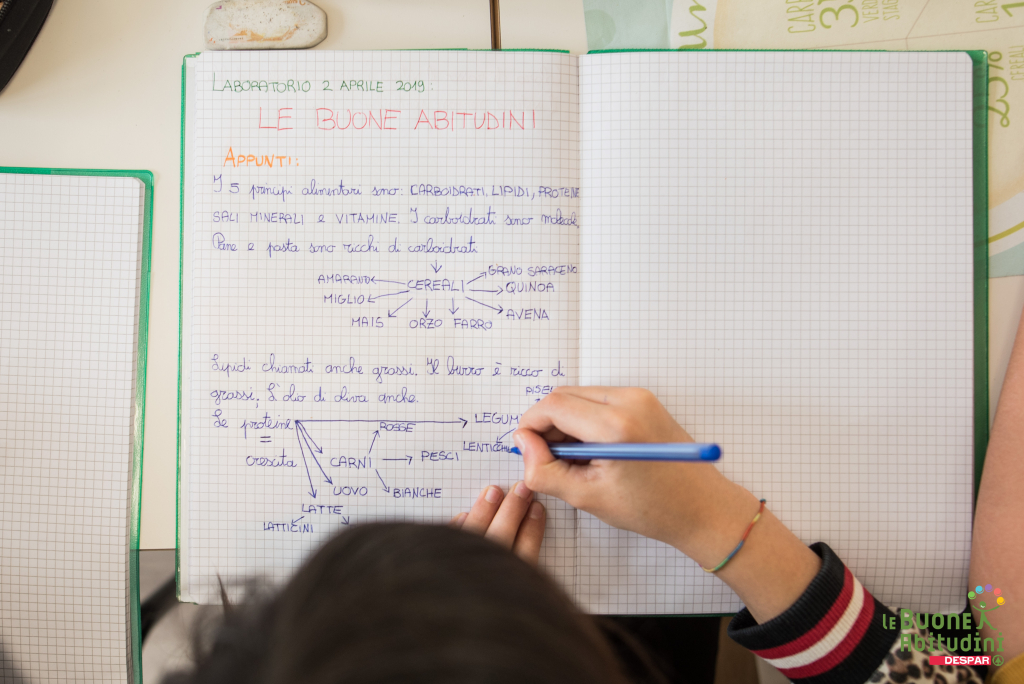 LABORATORIO 2 APRILE 2019:
LE BUONE ABITUDINI
APPUNTI:
I 5 principi alimentari sono: CARBOIDRATI, LIPIDI, PROTEINE
SALI MINERALI e VITAMINE. I carboidrati sono molecole,
Pane e pasta sono ricchi di carboidrati
AMARANTO CEREALI GRANO SARACENO
MIGLIO QUINOA
MAIS ORZO FARRO AVENA
Lipidi chiamati anche grassi. Il burro è ricco di
grassi, L'olio di oliva anche.
PISEL
Le proteine ROSSE LEGUMI
LENTICCHIE
crescita CARNI PESCI
UOVO BIANCHE
LATTE
LATTICINI
CARB
35%
CARB
25%
CEREALI
le BUONE
Abitudini
DESPAR